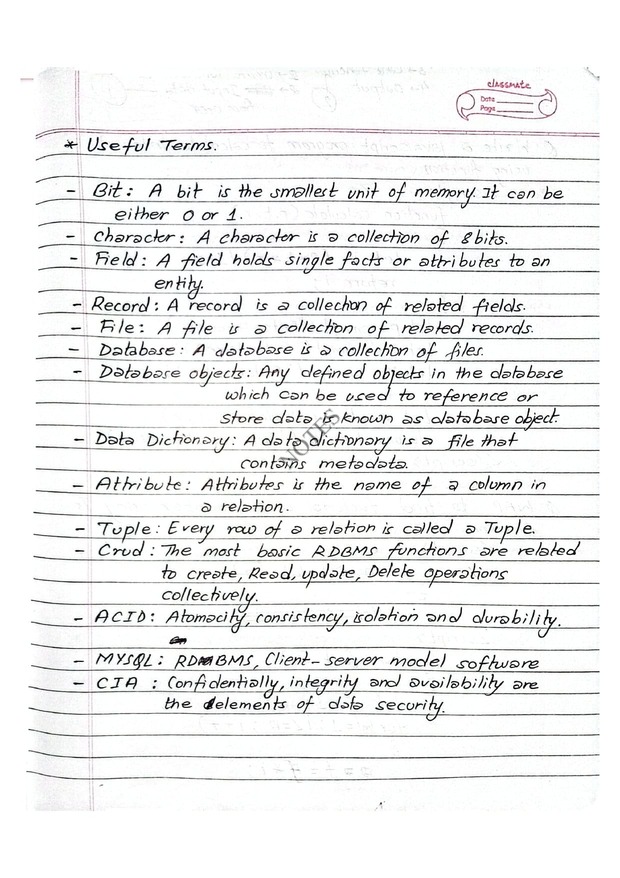 classmate
Date
Page
* Useful Terms.
- Bit: A bit is the smallest unit of memory. It can be
either 0 or 1.
- Character: A character is a collection of 8 bits.
- Field: A field holds single facts or attributes to an
entity.
- Record: A record is a collection of related fields.
- File: A file is a collection of related records.
- Database: A database is a collection of files.
- Database objects: Any defined objects in the database
which can be used to reference or
store data is known as database object.
NOTES
- Data Dictionary: A data dictionary is a file that
contains metadata.
- Attribute: Attributes is the name of a column in
a relation.
- Tuple: Every row of a relation is called a Tuple.
- Crud: The most basic RDBMS functions are related
to create, Read, update, Delete operations
collectively.
- ACID: Atomacity, consistency, isolation and durability.
- MYSQL: RDBMS, Client-server model software
- CIA : Confidentially, integrity and availability are
the elements of data security.